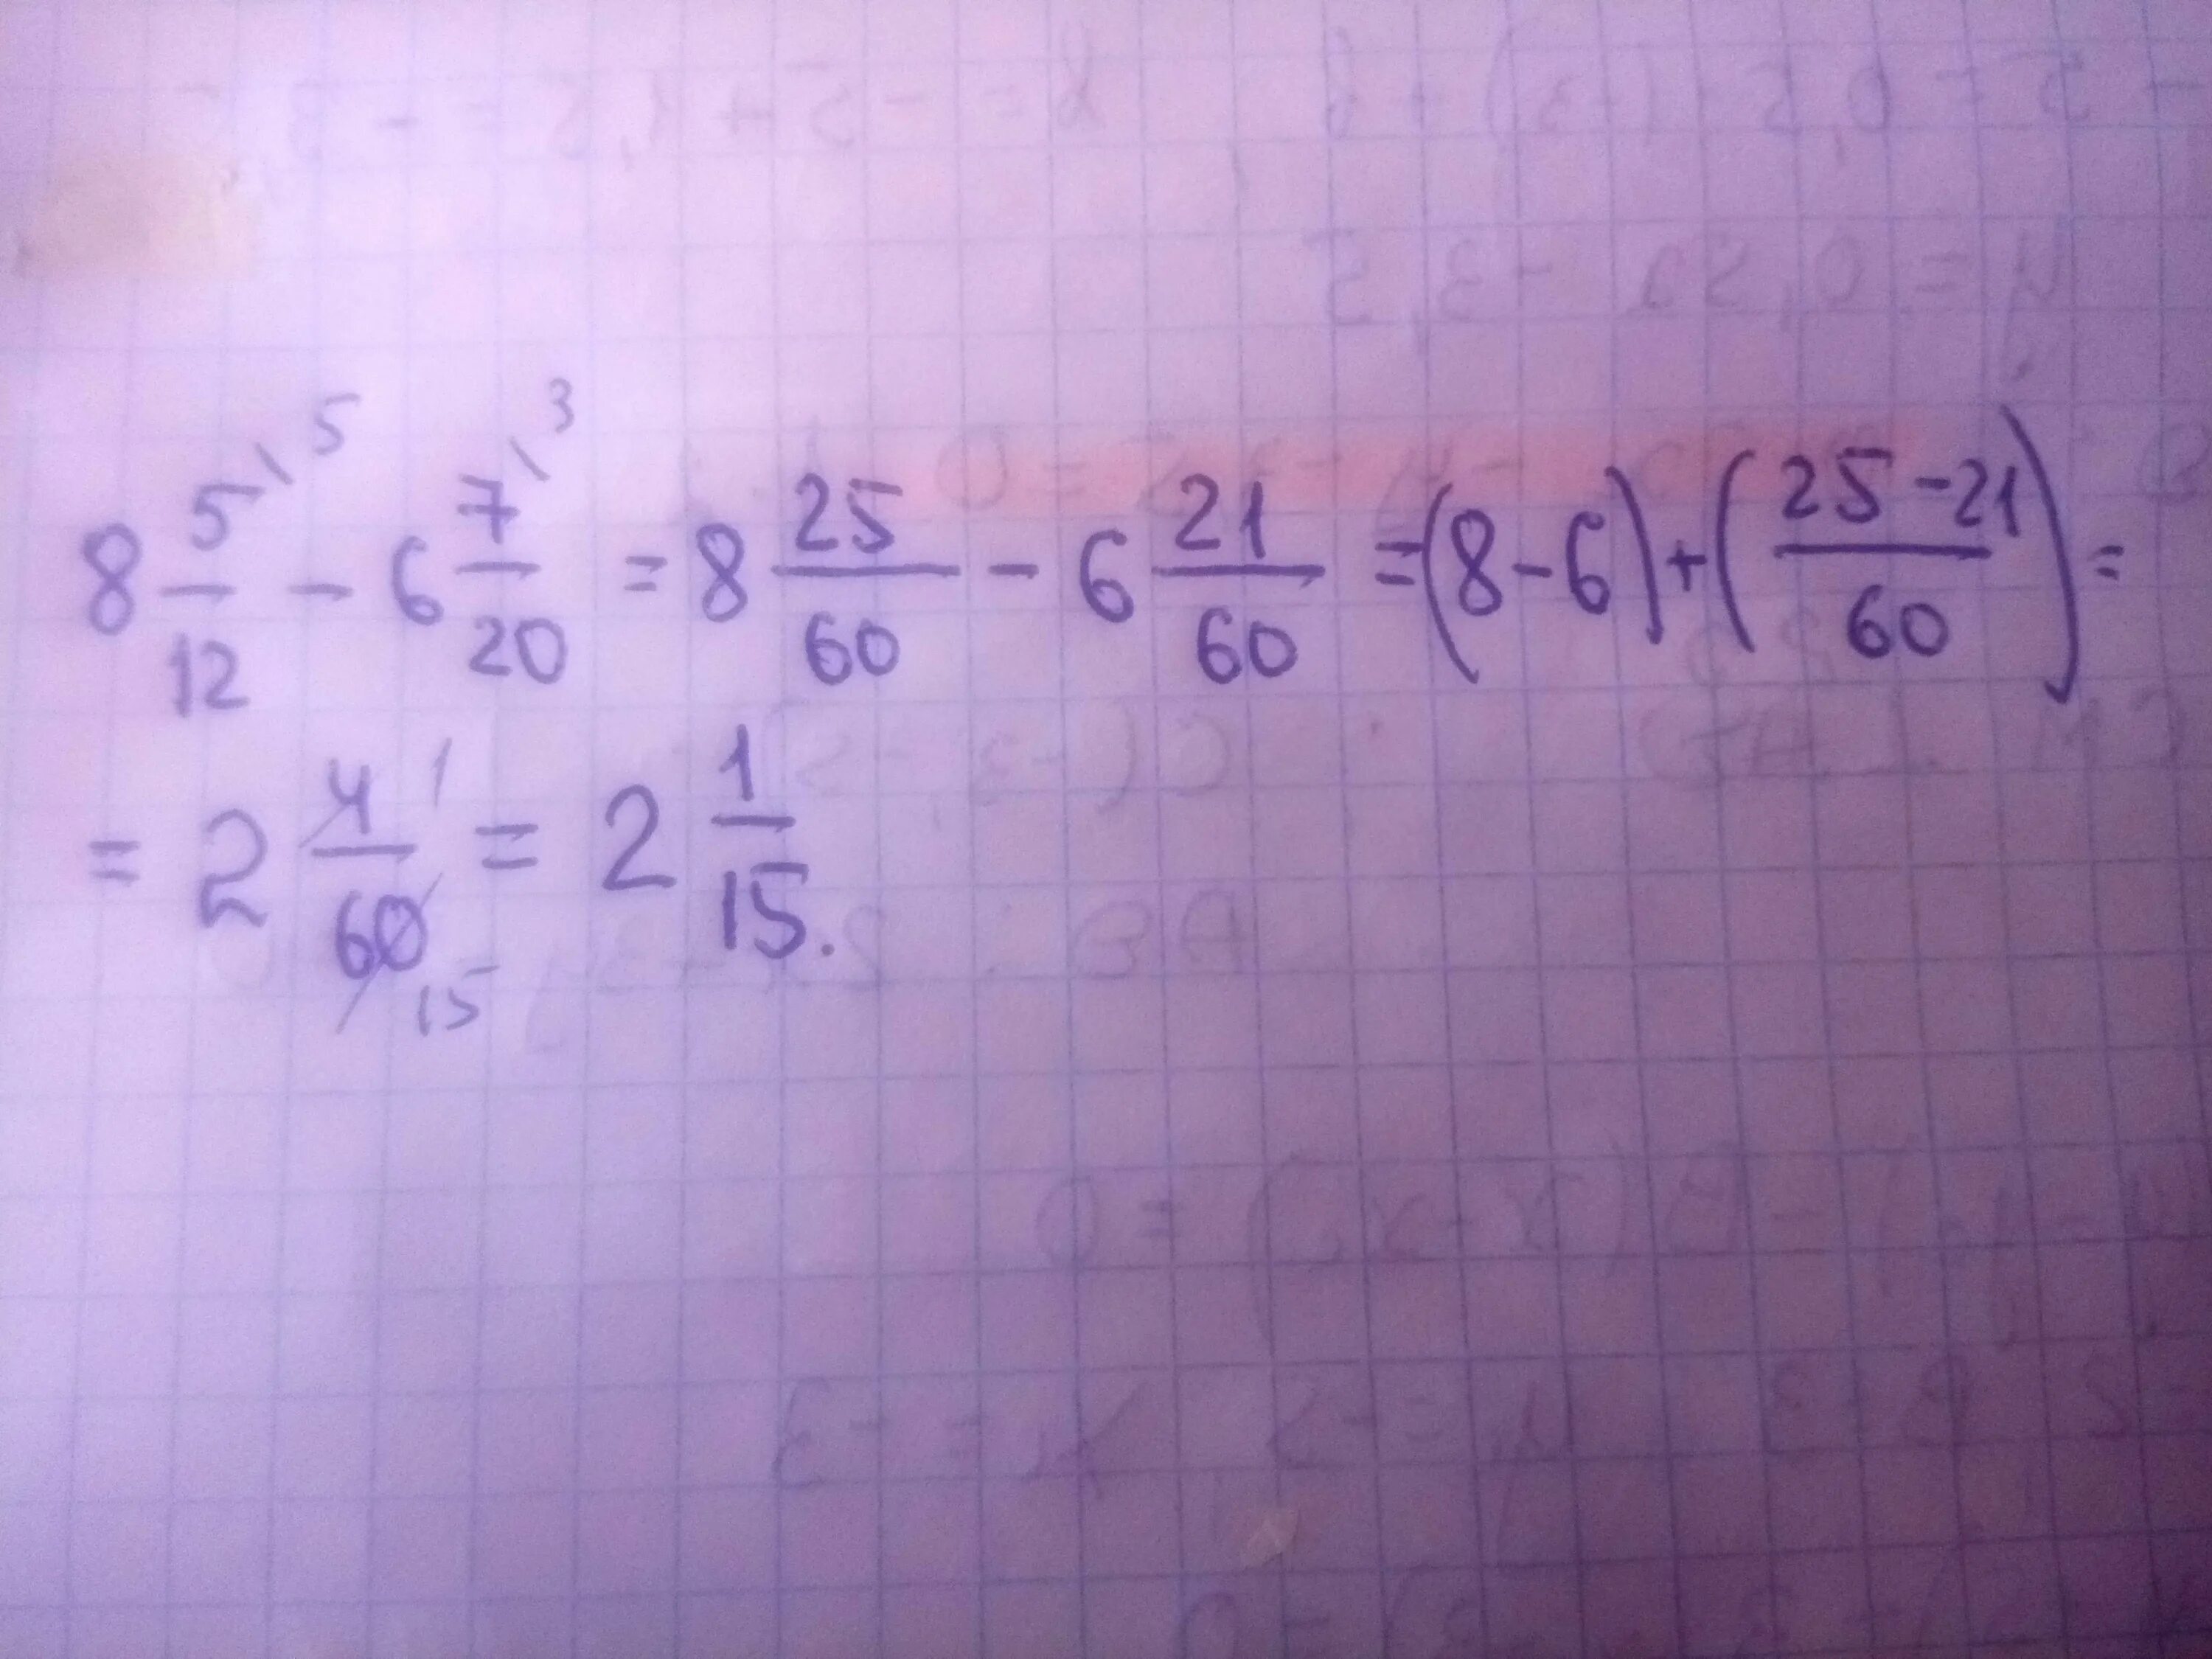 8 5\5/12 - 6 7\3/20 = 8 25/60 - 6 21/60 = (8-6) + (25-21/60) =
= 2 4 1/60 15 = 2 1/15.